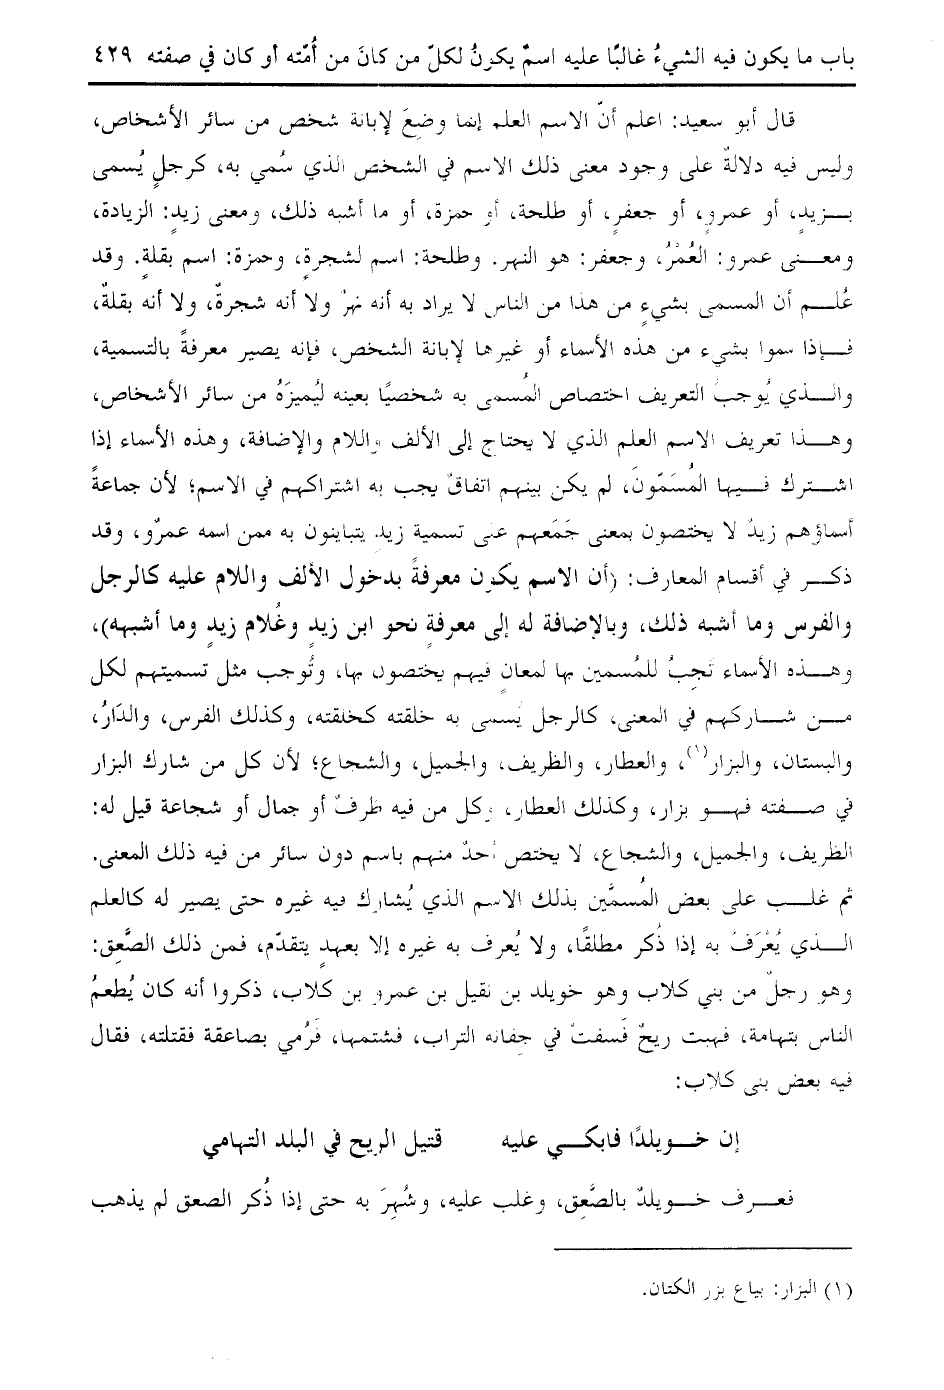 باب ما يكون فيه الشيءُ غالبًا عليه اسمٌ يكونُ لكلّ من كانَ من أُمّته أو كان في صفته ٤٢٩
قال أبو سعيد: اعلم أنّ الاسم العلم إنما وضِعَ لإبانة شخص من سائر الأشخاص،
وليس فيه دلالةٌ على وجود معنى ذلك الاسم في الشخص الذي سُمي به، كرجلٍ يُسمى
بـزيدٍ، أو عمرو، أو جعفرٍ، أو طلحة، أو حمزة، أو ما أشبه ذلك، ومعنى زيدٍ: الزيادة،
ومعـنى عمرو: العُمْرُ، وجعفر: هو النهر. وطلحة: اسم لشجرةٍ، وحمزة: اسم بقلةٍ. وقد
عُلـم أن المسمى بشيءٍ من هذا من الناس لا يراد به أنه نهرٌ ولا أنه شجرةٌ، ولا أنه بقلةٌ،
فـإذا سموا بشيء من هذه الأسماء أو غيرها لإبانة الشخص، فإنه يصير معرفةً بالتسمية،
والـذي يُوجب التعريف اختصاص المُسمى به شخصيًا بعينه ليُميزَهُ من سائر الأشخاص،
وهـذا تعريف الاسم العلم الذي لا يحتاج إلى الألف واللام والإضافة، وهذه الأسماء إذا
اشـترك فـيها المُسَمّون، لم يكن بينهم اتفاقٌ يجب به اشتراكهم في الاسم؛ لأن جماعةً
أسماؤهم زيدٌ لا يختصون بمعنى جَمَعهم على تسمية زيد. يتباينون به ممن اسمه عمرٌو، وقد
ذكـر في أقسام المعارف: (أن الاسم يكون معرفةً بدخول الألف واللام عليه كالرجل
والفرس وما أشبه ذلك، وبالإضافة له إلى معرفةٍ نحو ابن زيدٍ وغُلام زيدٍ وما أشبهه)،
وهـذه الأسماء تجبُ للمُسمين بها لمعان فيهم يختصون بها، وتُوجب مثل تسميتهم لكل
مـن شـاركهم في المعنى، كالرجل يُسمى به خلقته كخلقته، وكذلك الفرس، والدَارُ،
والبستان، والبزار(١)، والعطار، والظريف، والجميل، والشجاع؛ لأن كل من شارك البزار
في صـفته فهـو بزار، وكذلك العطار، وكل من فيه ظرفٌ أو جمال أو شجاعة قيل له:
الظريف، والجميل، والشجاع، لا يختص أحدٌ منهم باسم دون سائر من فيه ذلك المعنى.
ثم غلـب على بعض المُسمَّين بذلك الاسم الذي يُشارك فيه غيره حتى يصير له كالعلم
الـذي يُعْرَفُ به إذا ذُكر مطلقًا، ولا يُعرف به غيره إلا بعهدٍ يتقدّم، فمن ذلك الصَّعِق:
وهو رجلٌ من بني كلاب وهو خويلد بن نقيل بن عمرو بن كلاب، ذكروا أنه كان يُطعمُ
الناس بتهامة، فهبت ريحٌ فَسفتْ في جِفانه التراب، فشتمها، فَرُمي بصاعقة فقتلته، فقال
فيه بعض بني كلاب:
إن خـويلدًا فابكـي عليه قتيل الريح في البلد التهامي
فعـرف خـويلدٌ بالصَّعِق، وغلب عليه، وشُهرَ به حتى إذا ذُكر الصعق لم يذهب
(١) البزار: بياع بزر الكتان.